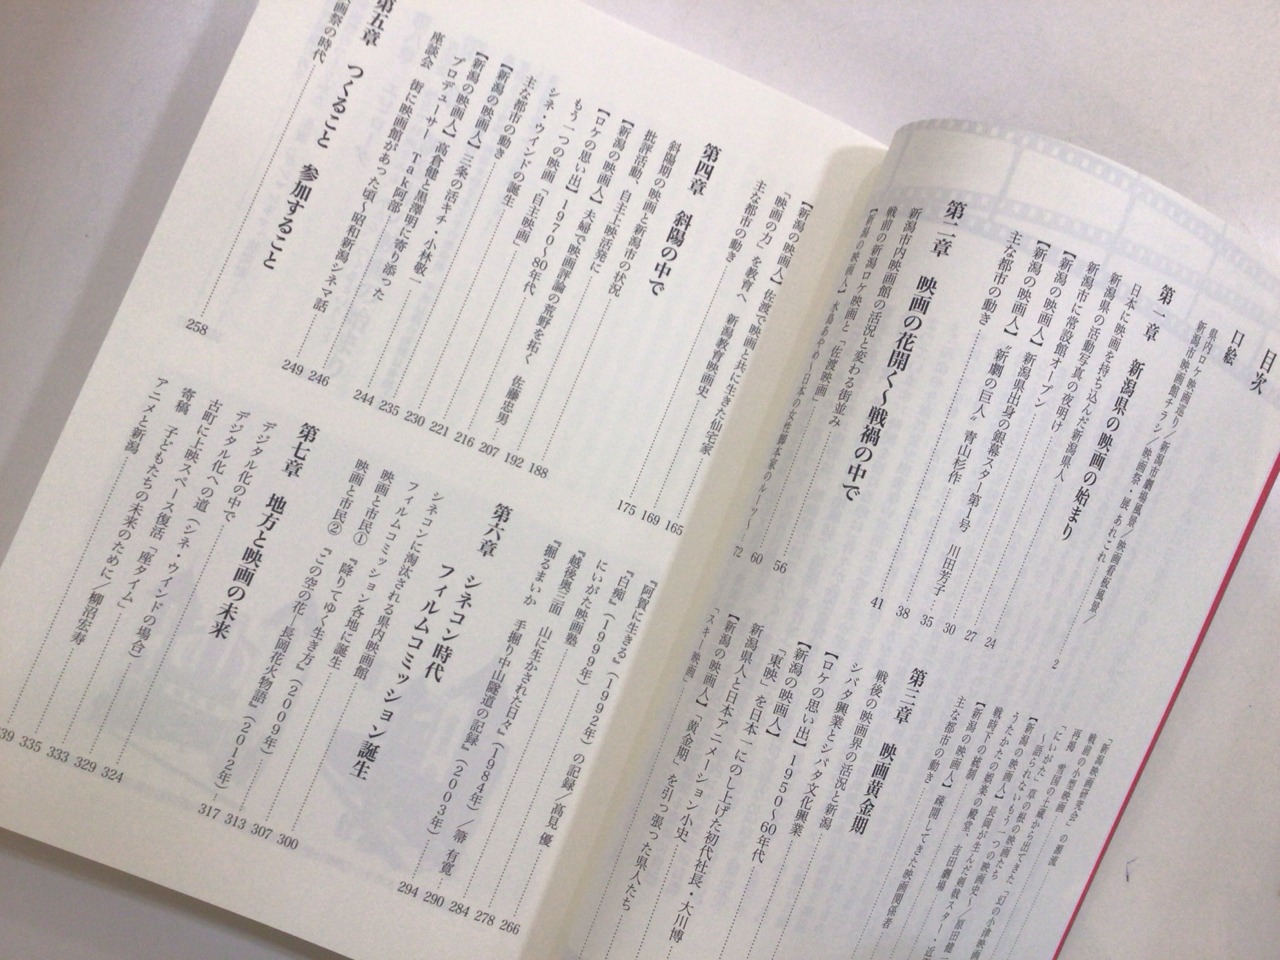 目次
口絵
県内ロケ映画巡り／新潟市劇場風景／映画看板風景／
新潟市映画館チラシ／映画祭・展 あれこれ／
第一章 新潟県の映画の始まり
日本に映画を持ち込んだ新潟県人 2
新潟県の活動写真の夜明け 24
新潟市に常設館オープン 27
【新潟の映画人】新潟県出身の銀幕スター第1号 川田芳子 30
【新潟の映画人】“新劇の巨人”青山杉作 35
主な都市の動き 38
第二章 映画の花開く～戦禍の中で
新潟市内映画館の活況と変わる街並み 41
戦前の新潟ロケ映画と「佐渡映画」 56
【新潟の映画人】水島あやめ～日本の女性脚本家のルーツ～ 60
72
「新潟映画研究会」の源流
戦前の小型映画
再掲 雪国の土蔵から出てきた「幻の小津映画
「にいがた」草の根の映画史～
～語られないもう一つの映画史～
【新潟の映画人】長岡が生んだ剣戟スター・近
うたかたの映画人たち
戦時下の統制
【新潟の映画人】疎開してきた映画関係者
主な都市の動き
第三章 映画黄金期
戦後の映画界の活況と新潟
シバタ興業とシバタ文化興業
【ロケの思い出】1950～60年代
【新潟の映画人】
「東映」を日本一にのし上げた初代社長・大川博
新潟県人と日本アニメーション小史
【新潟の映画人】「黄金期」を引っ張った県人たち
「スキー映画」
【新潟の映画人】佐渡で映画と共に生きた仙宅家 165
「映画の力」を教育へ 新潟教育映画史 169
主な都市の動き 175
第四章 斜陽の中で
斜陽期の映画と新潟市の状況 188
批評活動、自主上映活発に 192
【新潟の映画人】夫婦で映画評論の荒野を拓く 佐藤忠男 207
【ロケの思い出】1970～80年代 216
もう一つの映画「自主映画」 221
シネ・ウインドの誕生 230
主な都市の動き 235
【新潟の映画人】三条の活キチ・小林敬一 244
【新潟の映画人】高倉健と黒澤明に寄り添った
プロデューサー Tak阿部 246
座談会 街に映画館があった頃～昭和新潟シネマ話 249
第五章 つくること 参加すること
画祭の時代 258
『阿賀に生きる』（1992年）の記録／高見 優 266
『白痴』（1999年） 278
にいがた映画塾 284
『越後奥三面 山に生かされた日々』（1984年） 290
『掘るまいか 手掘り中山隧道の記録』（2003年）／箒 有寛 294
第六章 シネコン時代
フィルムコミッション誕生
シネコンに淘汰される県内映画館 300
フィルムコミッション各地に誕生 307
映画と市民① 『降りてゆく生き方』（2009年） 313
映画と市民② 『この空の花 ―長岡花火物語』（2012年） 317
第七章 地方と映画の未来
デジタル化の中で 324
デジタル化への道（シネ・ウインドの場合） 329
古町に上映スペース復活「座タイム」 333
寄稿 子どもたちの未来のために／柳沼宏寿 335
アニメと新潟 339